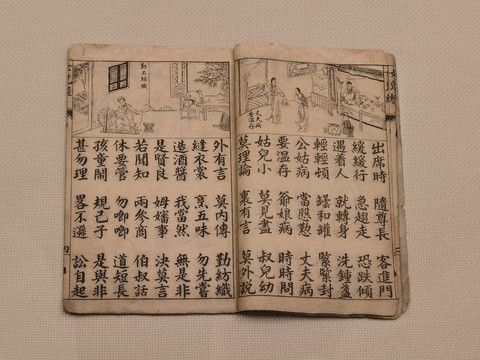 女兒經
丈夫病
要溫存
出席時 隨尊長 客進門
緩緩行 急趨走 恐跌傾
遇着人 就轉身 洗鍾盞
輕輕頓 罈和罐 緊緊封
公姑病 當慇懃 丈夫病
要溫存 爺娘病 時時問
姑兒小 莫見盡 叔兒幼
莫理論 裏有言 莫外說
外有言 莫內傳 勤紡織
縫衣裳 烹五味 勿先嘗
造酒醬 我當然 無是非
是賢良 姆嬸事 決莫言
若聞知 兩參商 伯叔話
休要管 勿唧唧 道短長
孩童鬧 規己子 是與非
甚勿理 畧不遜 訟自起